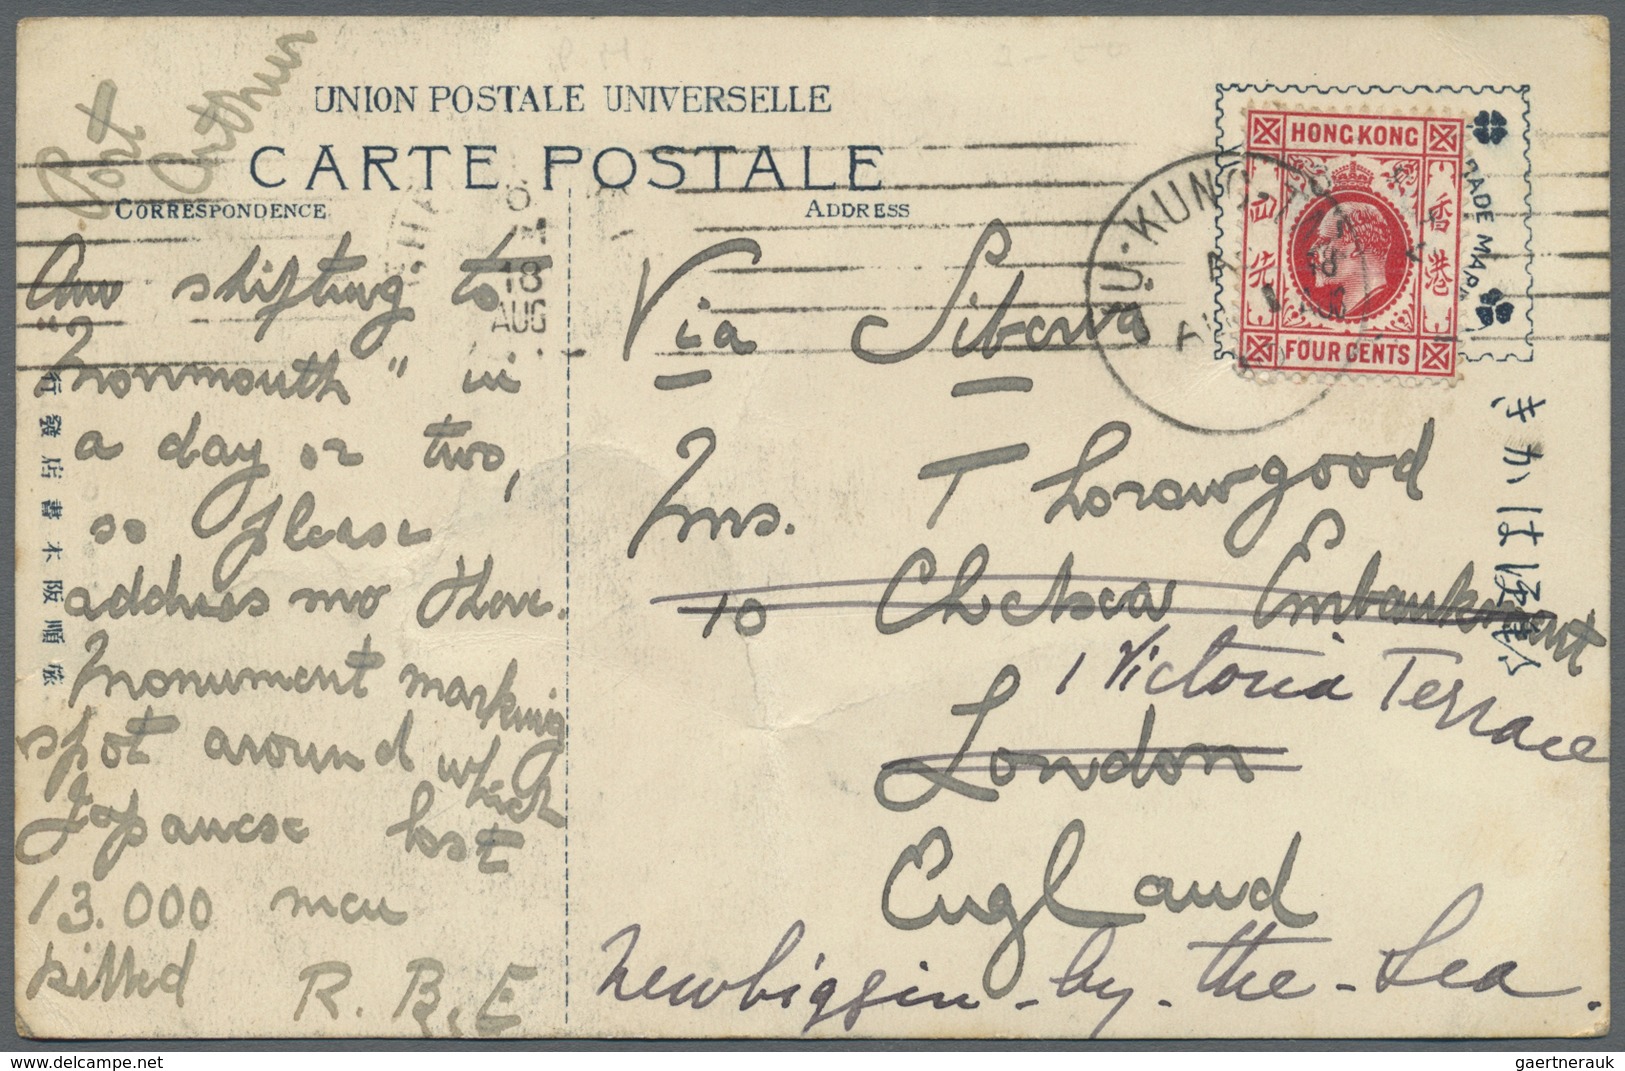 Port
Arthur
UNION POSTALE UNIVERSELLE
CARTE POSTALE
CORRESPONDENCE
ADDRESS
Am shifting to
"Monmouth" in
a day or two,
so please
address me there.
Monument marking
spot around which
Japanese lost
13.000 men
killed
R. B. E
Via Siberia
Mrs. Thorowgood
10 Chelsea Embankment
1 Victoria Terrace
London
England
Newbiggin-by-the-Sea.
HONG KONG
香港
FOUR CENTS
TRADE MARK
LIU·KUNG·TAU
18
AUG
18
AUG
きかは便郵
旅順阪木書店發行
delcampe.net
gaertnerauk